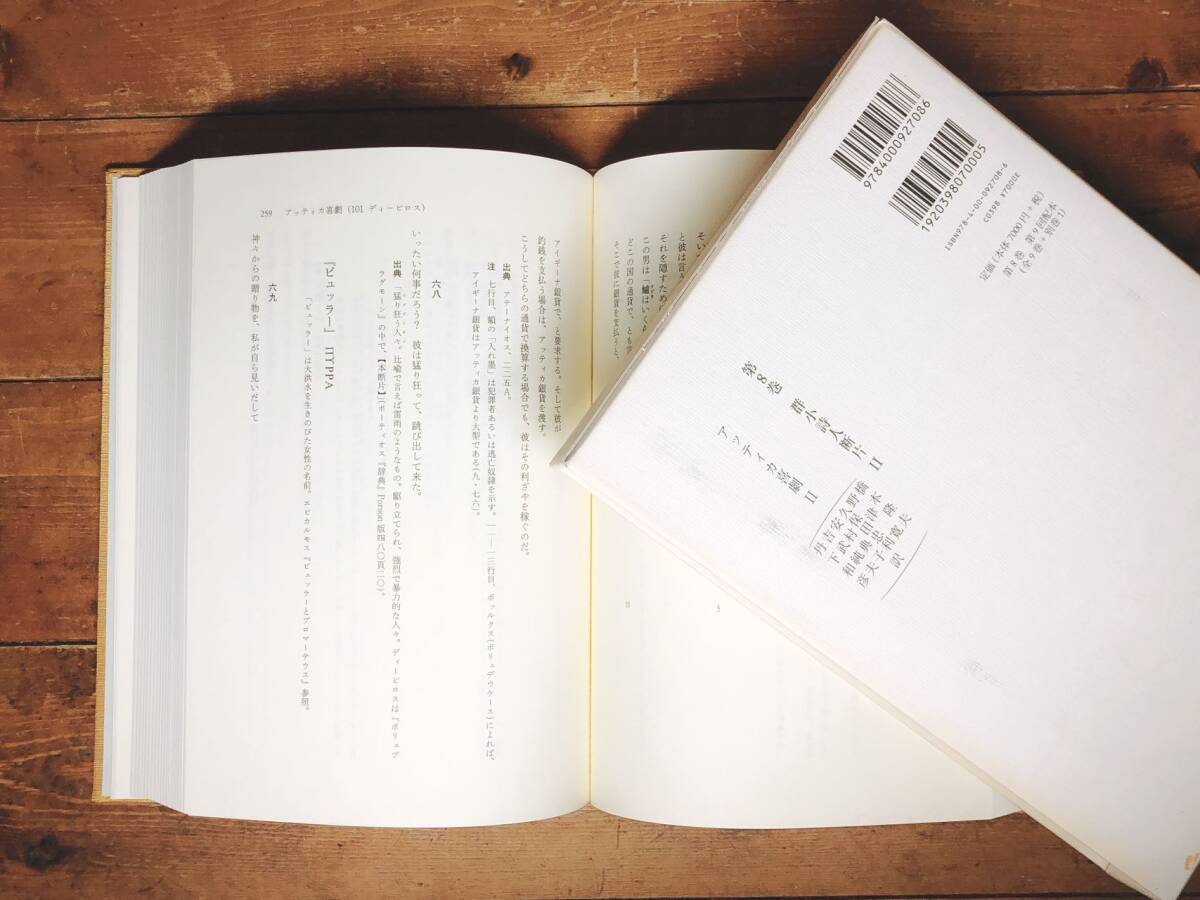 と彼は言う
それを隠すため
この男は「鱸はいくら
どこの国の通貨で、とも
そこで彼に銀貨を支払うと、
5
10
259 アッティカ喜劇(101 ディーピロス)
アイギーナ銀貨で、と要求する。そして彼が
釣銭を支払う場合は、アッティカ銀貨を渡す。
こうしてどちらの通貨で換算する場合でも、彼はその利ざやを稼ぐのだ。
出典 アテーナイオス、二二五A。
注 七行目、額の「入れ墨」は犯罪者あるいは逃亡奴隷を示す。一一―一三行目、ポックス(ポリュデウケース)によれば、
アイギーナ銀貨はアッティカ銀貨より大型である(九・七六)。
六八
いったい何事だろう? 彼は猛り狂って、跳び出して来た。
出典 「猛り狂う人々。比喩で言えば雷雨のようなもの。駆り立てられ、強烈で暴力的な人々。ディーピロスは『ポリュプ
ラグモーン』の中で、【本断片】」(ポーティオス『辞典』Porson版四八〇頁二〇)。
『ピュッラー』 ΠΥΡΡΑ
「ピュッラー」は大洪水を生きのびた女性の名前。エピカルモス『ピュッラーとプロマーテウス』参照。
六九
神々からの贈り物を、私が自ら見いだして
9784000927086
1920398070005
ISBN978-4-00-092708-6
C0398 ¥7000E
定価(本体7000円+税)
第8巻 第9回配本
(全9巻+別巻1)
第8巻 群小詩人断片 II
アッティカ喜劇 II
橋本隆夫
野津寛
久保田忠利
安村典子
吉武純夫
丹下和彦
訳